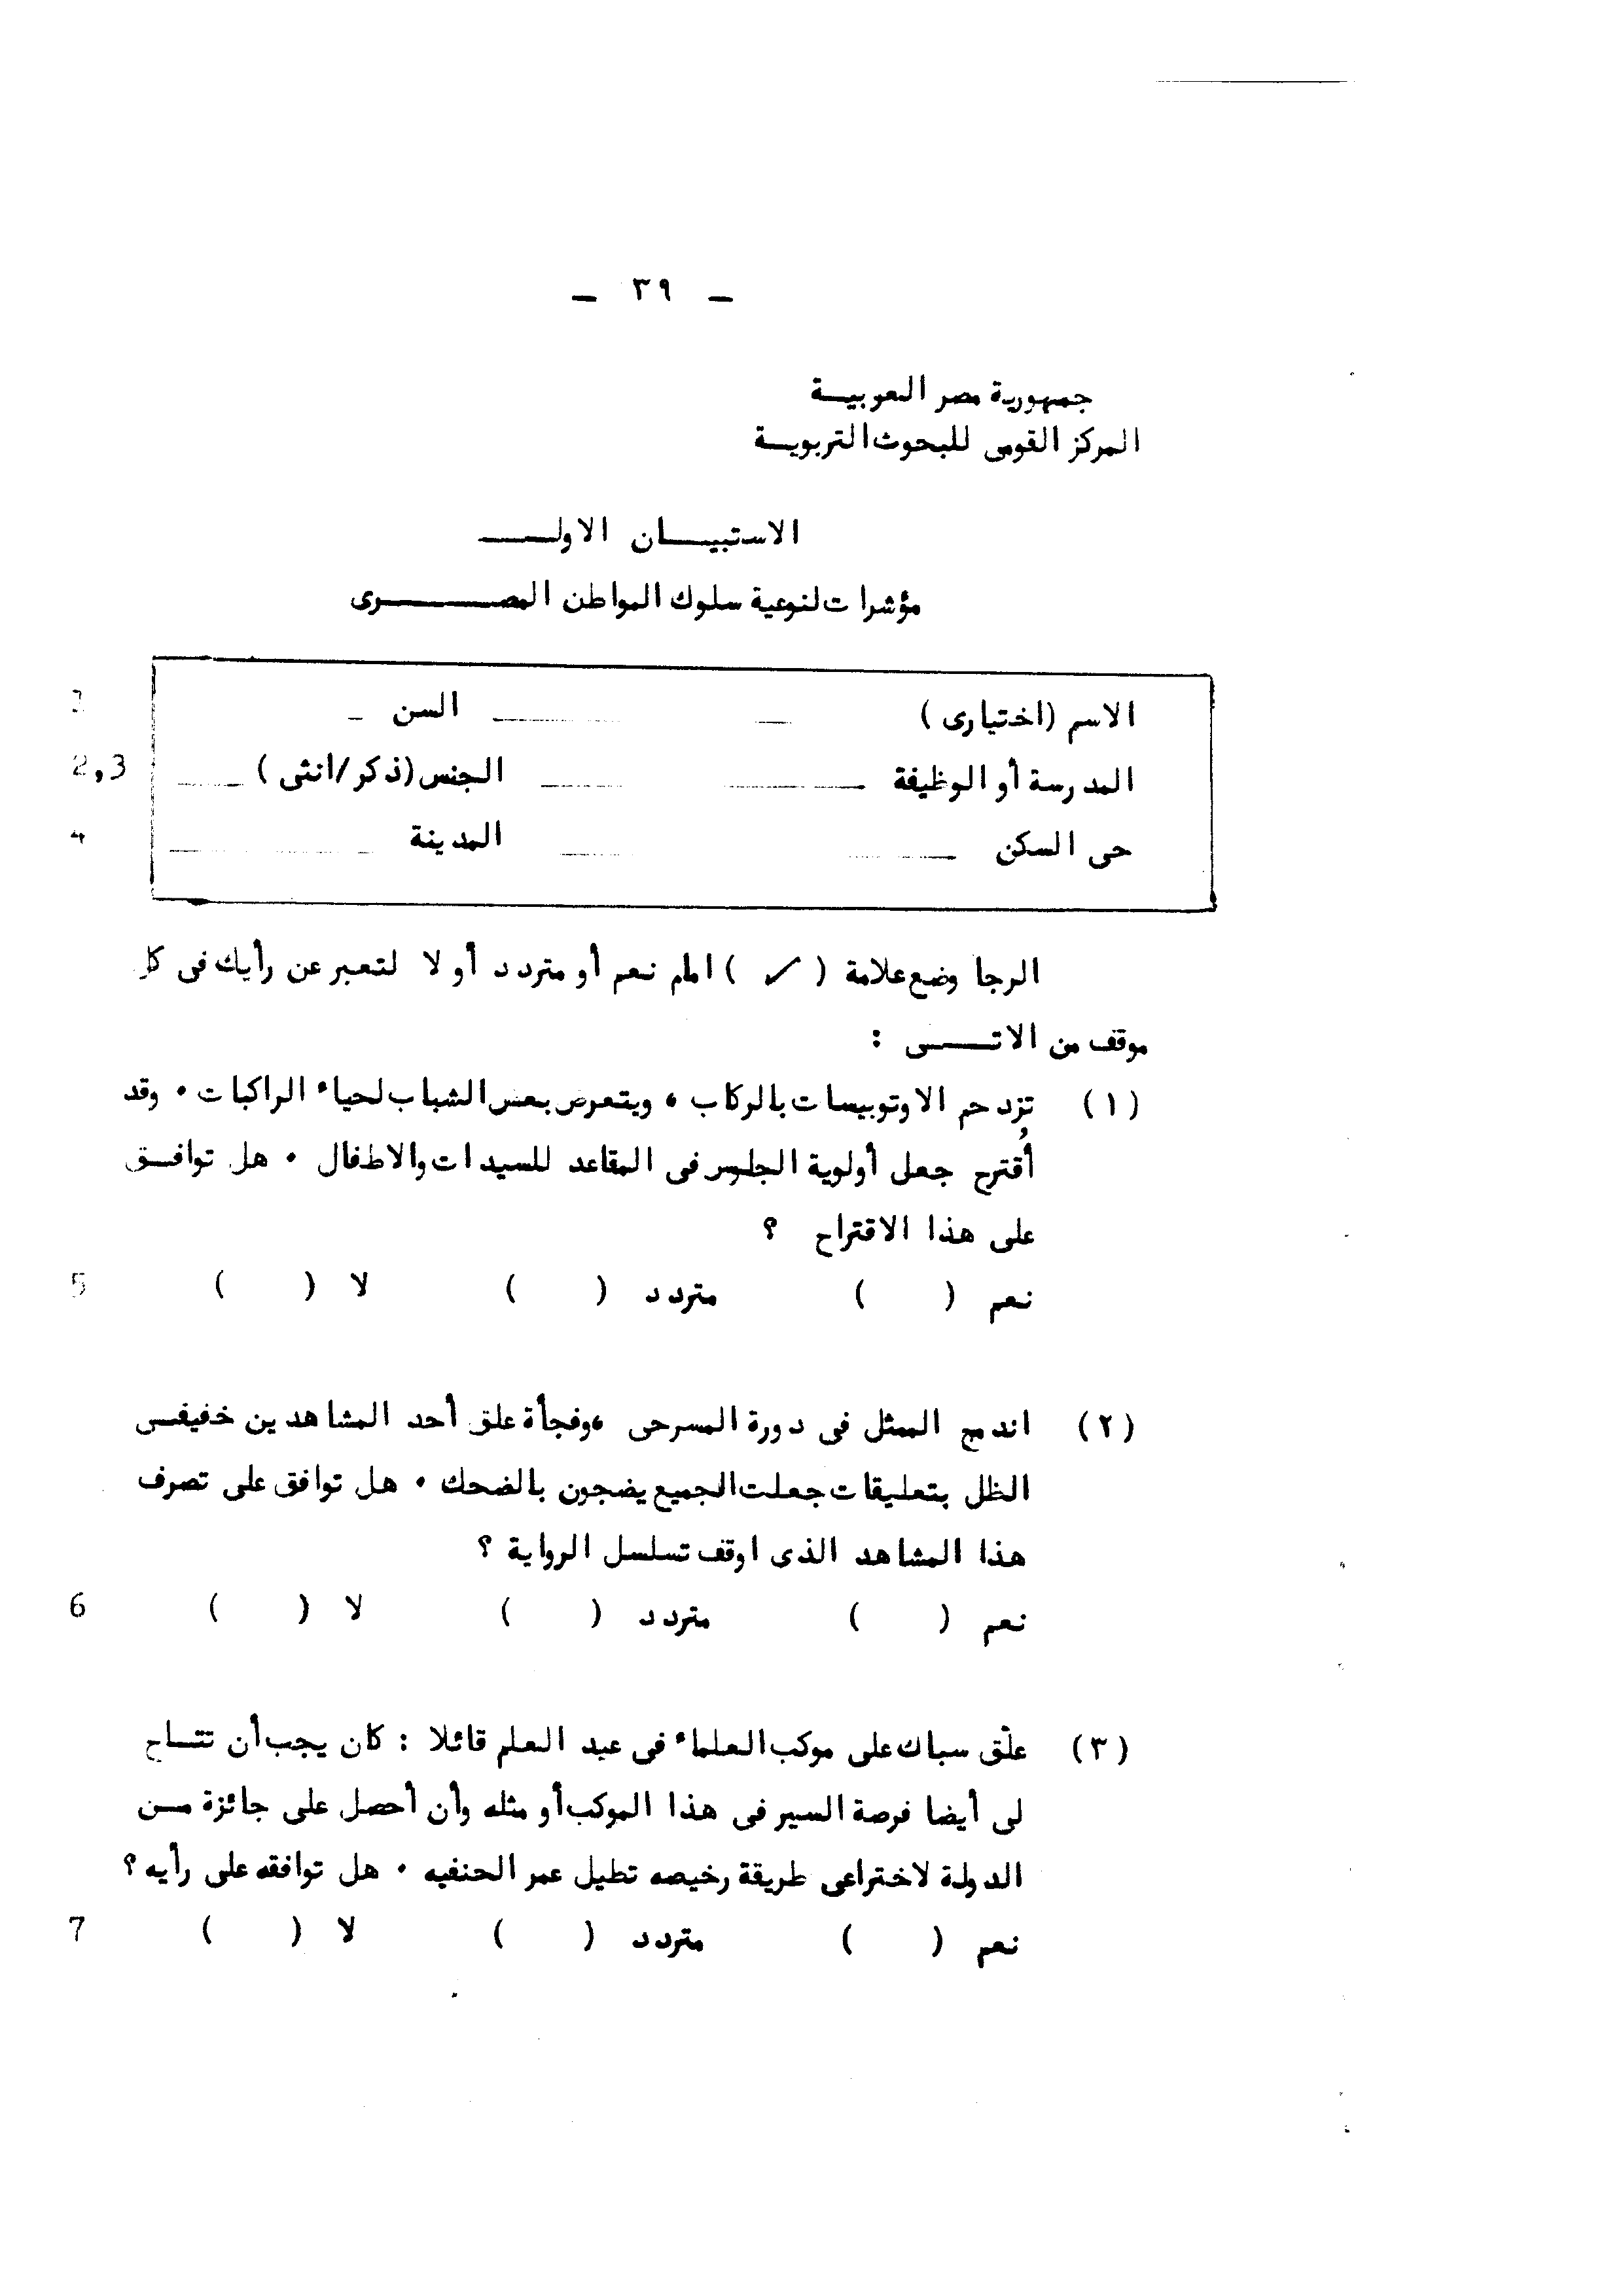 ـ ٣٩ ـ
جمهورية مصر العربيـــة
المركز القومى للبحوث التربويـــة
الاستبيـــــان الاولـــــ
مؤشرات لنوعية سلوك المواطن المصـــــــــرى
الاسم (اختيارى) السن
المدرسة أو الوظيفة الجنس (ذكر/انثى) 2,3
حى السكن المدينة 4
الرجا وضع علامة ( ✓ ) امام نعم أو متردد أو لا لتعبر عن رأيك فى كل
موقف من الاتـــــــى :
(١) تزدحم الاوتوبيسات بالركاب ، ويتعرض بعض الشباب لحياء الراكبات ٠ وقد
أُقترح جعل أولوية الجلوس فى المقاعد للسيدات والاطفال ٠ هل توافـــق
على هذا الاقتراح ؟
نعم ( ) متردد ( ) لا ( ) 5
(٢) اندمج الممثل فى دورة المسرحى ،وفجأة علق أحد المشاهدين خفيفـــى
الظل بتعليقات جعلت الجميع يضجون بالضحك ٠ هل توافق على تصرف
هذا المشاهد الذى اوقف تسلسل الرواية ؟
نعم ( ) متردد ( ) لا ( ) 6
(٣) علّق سباك على موكب العلماء فى عيد العلم قائلا : كان يجب أن تتـــاح
لى أيضا فرصة السير فى هذا الموكب أو مثله وأن أحصل على جائزة مـــن
الدولة لاختراعى طريقة رخيصه تطيل عمر الحنفيه ٠ هل توافقه على رأيه ؟
نعم ( ) متردد ( ) لا ( ) 7